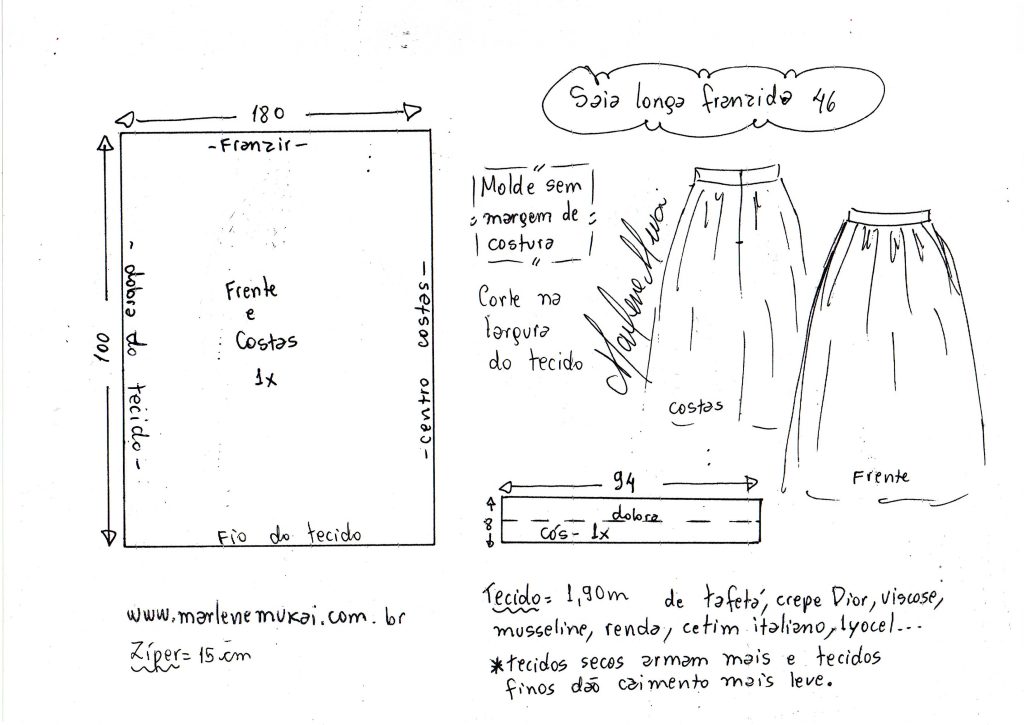 Saia longa franzida 46
180
-Franzir-
100
-dobra do tecido-
Frente
e
Costas
1x
-centro costas-
Fio do tecido
Molde sem
margem de
costura
Corte na
largura
do tecido
Marlene Mukai
costas
Frente
94
8
dobra
Cós- 1x
www.marlenemukai.com.br
Zíper= 15 cm
Tecido= 1,90m de tafetá, crepe Dior, viscose,
musseline, renda, cetim italiano, lyocel...
*tecidos secos armam mais e tecidos
finos dão caimento mais leve.